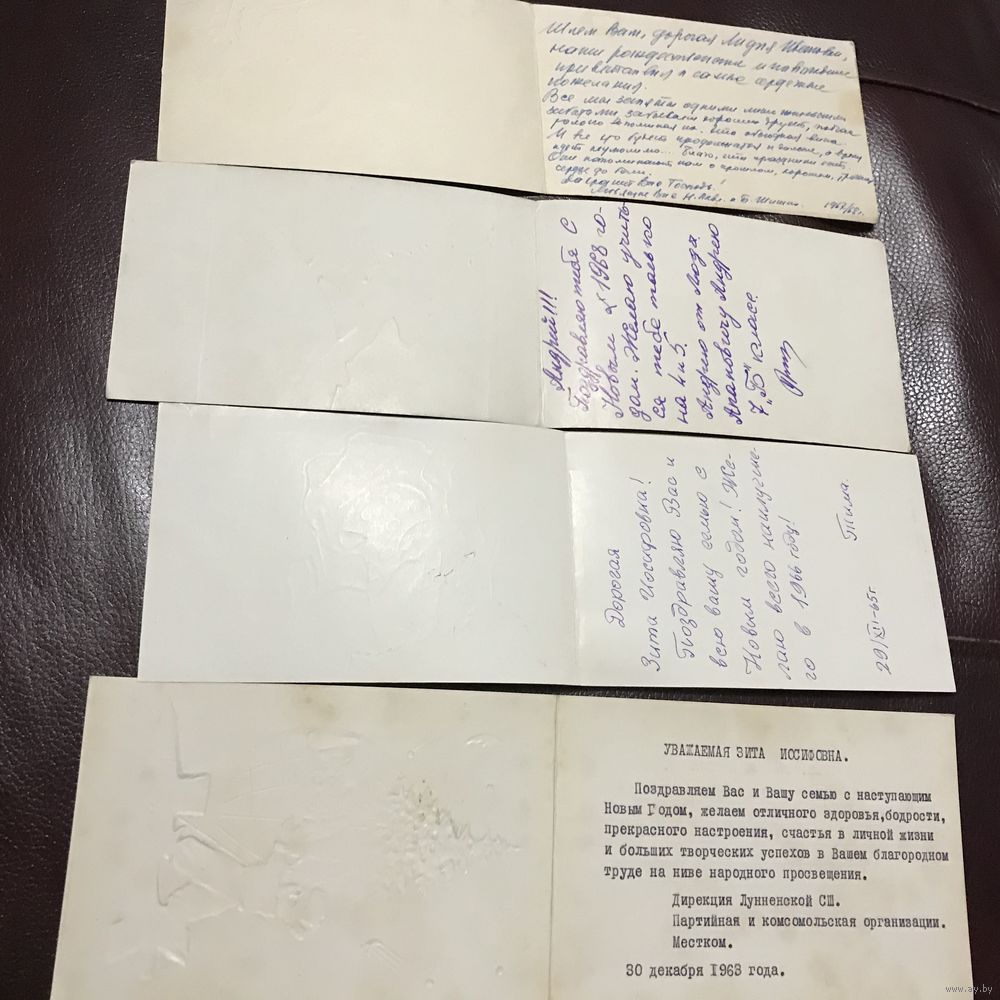 Шлем Вам, дорогая Лидия Ивановна,
наши рождественские и новогодние
приветствия и самые сердечные
пожелания.
Все мы заняты одними
заботами
И все это будет продолжаться и дальше, а время
идет неумолимо... Благо, что праздники есть
Они напоминают нам о прошлом, хорошем,
сердцу до боли.
Да хранит Вас Господь!
Андрий!!!
Поздравляю тебя с
Новым 1968 го-
дом. Желаю учить-
ся тебе только
на 4 и 5.
Андрею от Люды
Апановичу Андрею
7 „Б" класс.
Дорогая
Зита Иосифовна!
Поздравляю Вас и
всю вашу семью с
Новым годом! Же-
лаю всего наилучше-
го в 1966 году!
Тила.
29/XII-65г.
УВАЖАЕМАЯ ЗИТА ИОСИФОВНА.
Поздравляем Вас и Вашу семью с наступающим
Новым Годом, желаем отличного здоровья,бодрости,
прекрасного настроения, счастья в личной жизни
и больших творческих успехов в Вашем благородном
труде на ниве народного просвещения.
Дирекция Лунненской СШ.
Партийная и комсомольская организации.
Местком.
30 декабря 1963 года.
www.ay.by